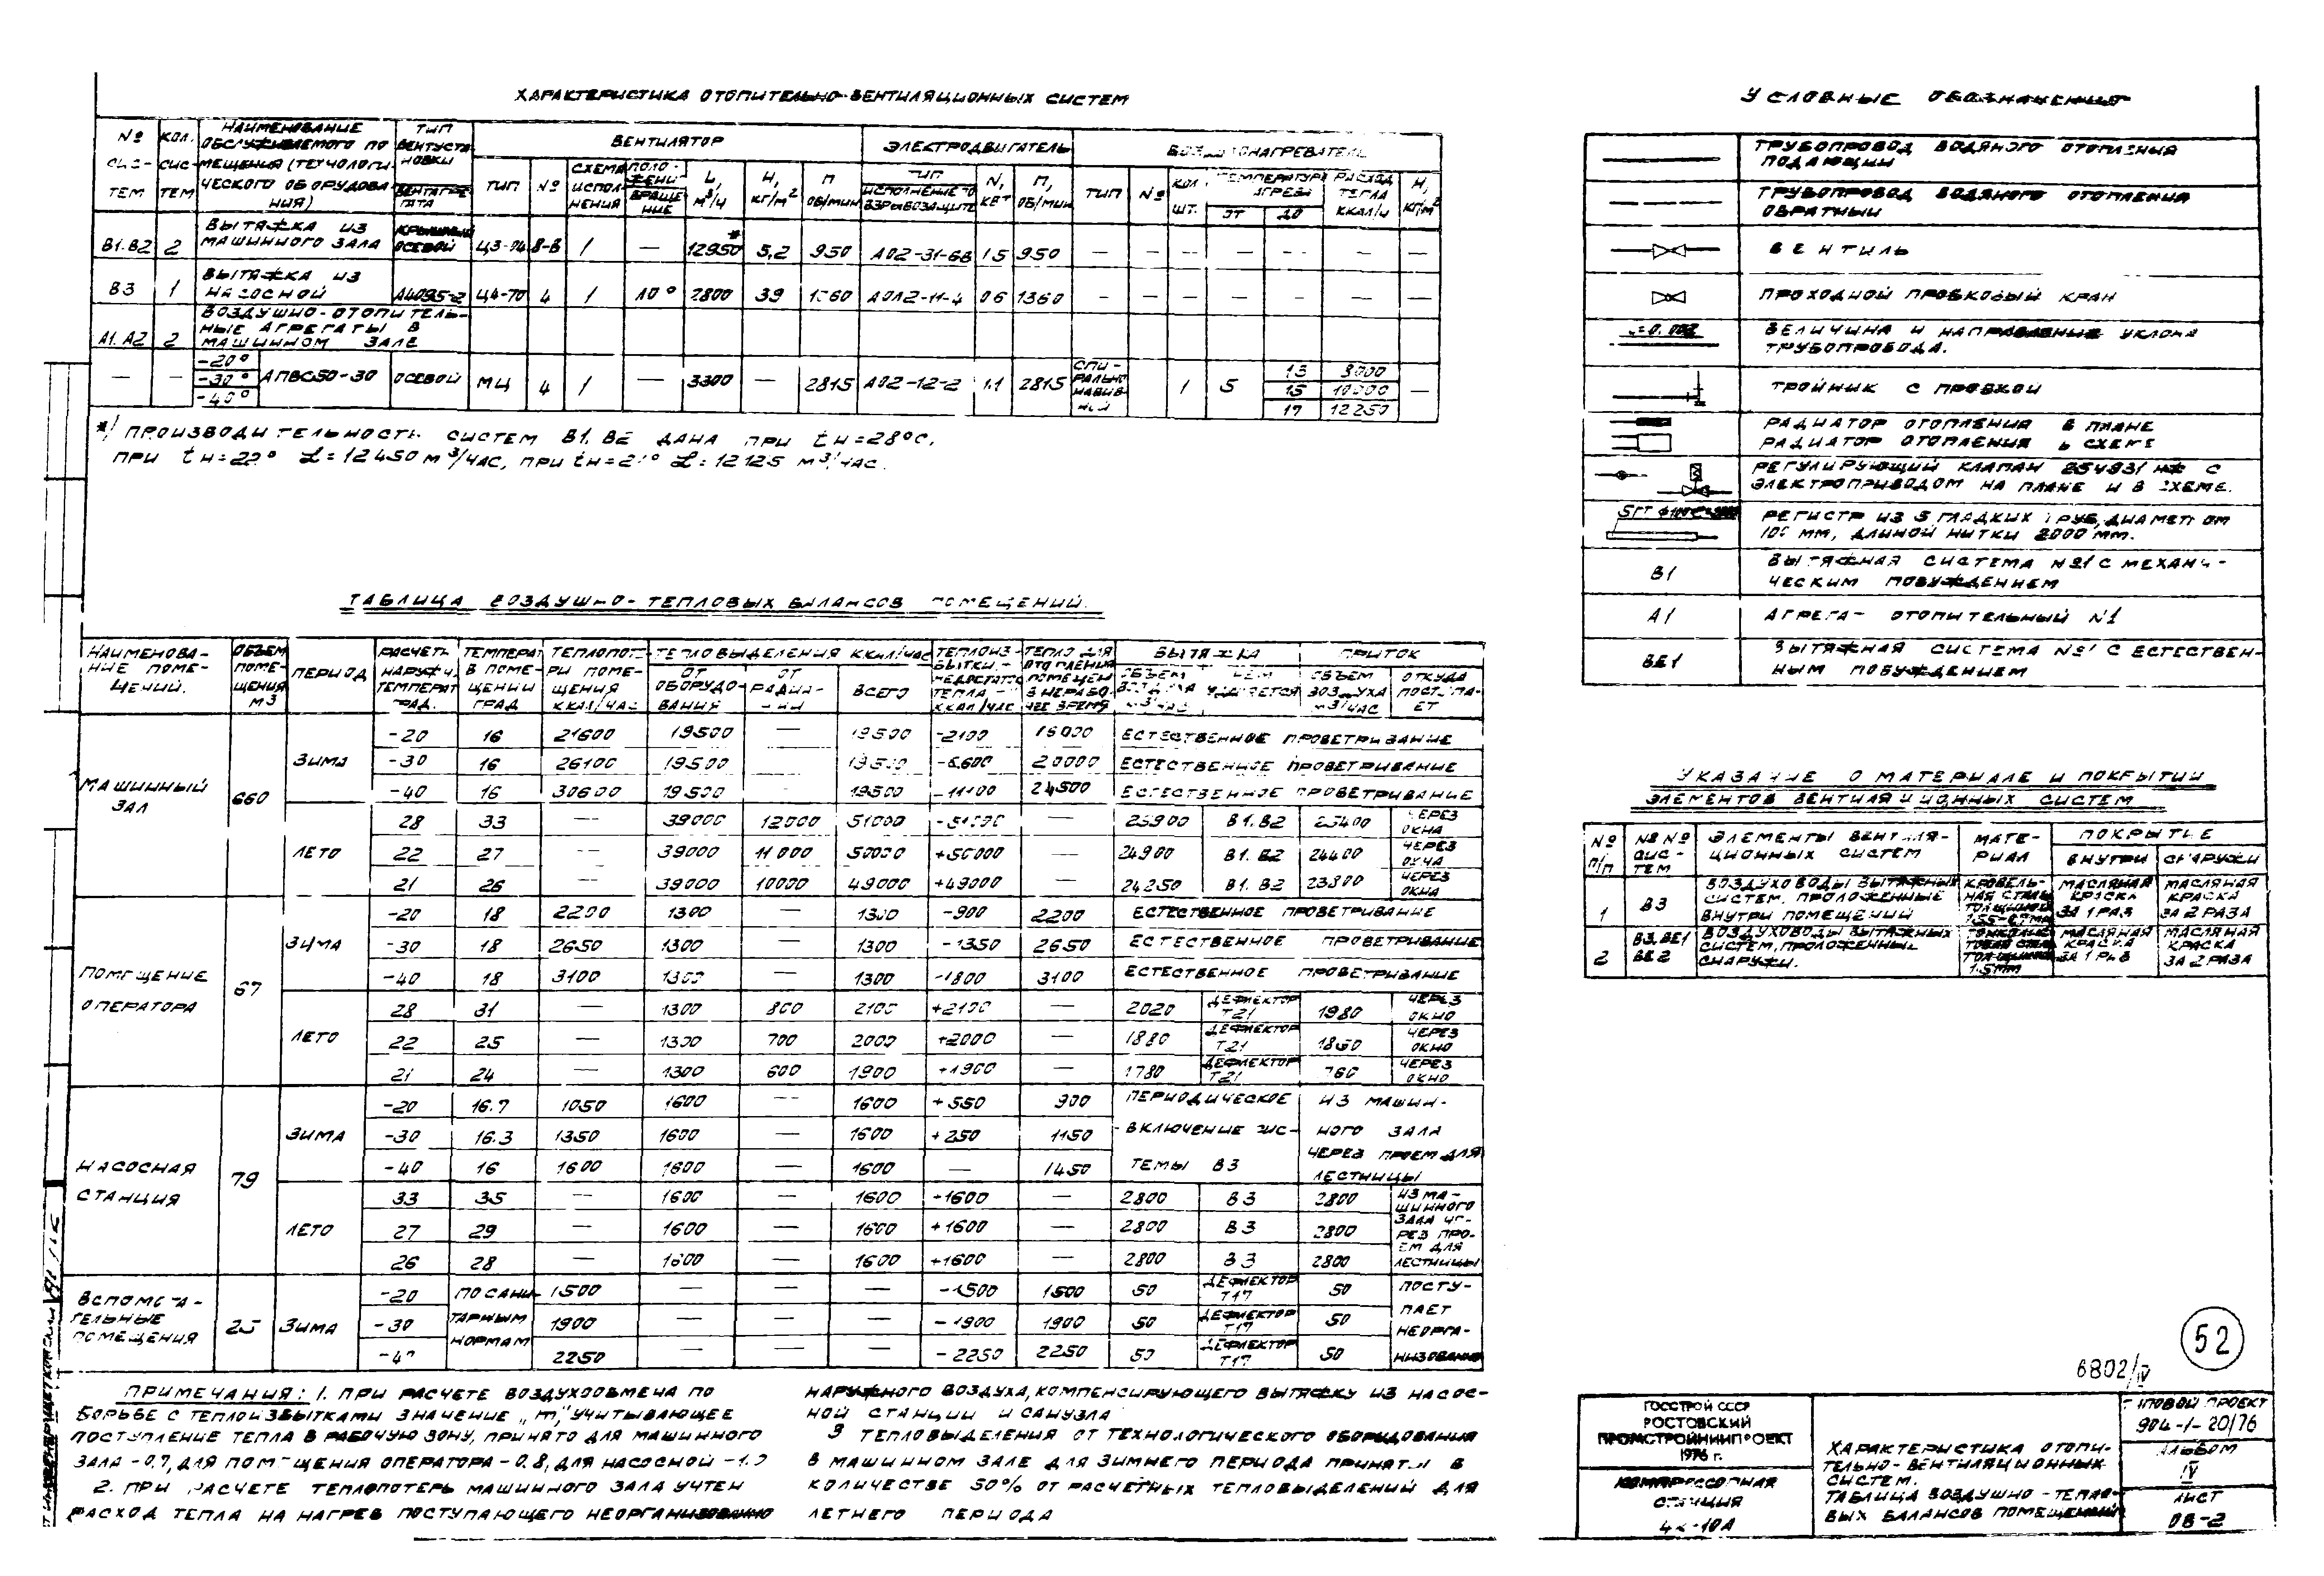 ХАРАКТЕРИСТИКА ОТОПИТЕЛЬНО-ВЕНТИЛЯЦИОННЫХ СИСТЕМ
№ СИСТЕМ | КОЛ. СИСТЕМ | НАИМЕНОВАНИЕ ОБСЛУЖИВАЕМОГО ПОМЕЩЕНИЯ (ТЕХНОЛОГИЧЕСКОГО ОБОРУДОВАНИЯ) | ТИП ВЕНТУСТАНОВКИ ВЕНТАГРЕГАТА | ВЕНТИЛЯТОР | ЭЛЕКТРОДВИГАТЕЛЬ | ВОЗДУХОНАГРЕВАТЕЛЬ
ТИП | № | СХЕМА ИСПОЛНЕНИЯ | ПОЛОЖЕНИЕ ВРАЩЕНИЕ | L, М³/Ч | H, КГ/М² | П ОБ/МИН | ТИП ИСПОЛНЕНИЕ ПО ВЗРЫВОЗАЩИТЕ | N, КВТ | П, ОБ/МИН | ТИП | № | КОЛ. ШТ. | ТЕМПЕРАТУРА НАГРЕВА ОТ ДО | РАСХОД ТЕПЛА ККАЛ/Ч | Н, КГ/М²
В1.В2 | 2 | ВЫТЯЖКА ИЗ МАШИННОГО ЗАЛА | КРЫШНЫЙ ОСЕВОЙ | ЦЗ-04 | 8-В | 1 | — | 12950* | 5,2 | 950 | АО2-31-6В | 1.5 | 950 | — | — | — | — | — | — | —
В3 | 1 | ВЫТЯЖКА ИЗ НАСОСНОЙ | А4095-2 | Ц4-70 | 4 | 1 | Л0° | 2800 | 39 | 1360 | АОЛ2-11-4 | 0.6 | 1360 | — | — | — | — | — | — | —
А1.А2 | 2 | ВОЗДУШНО-ОТОПИТЕЛЬНЫЕ АГРЕГАТЫ В МАШИННОМ ЗАЛЕ
— | — | -20° -30° -40° | АПВС50-30 | ОСЕВОЙ | МЦ | 4 | 1 | — | 3300 | — | 2815 | АО2-12-2 | 1.1 | 2815 | СПИРАЛЬНО НАВИВНЫЙ | 1 | 5 | 13 | 8000 | —
15 | 10000
17 | 12250
*) ПРОИЗВОДИТЕЛЬНОСТЬ СИСТЕМ В1.В2 ДАНА ПРИ tН=28°С,
ПРИ tН=22° L=12450 М³/ЧАС, ПРИ tН=21° L=12125 М³/ЧАС.
ТАБЛИЦА ВОЗДУШНО-ТЕПЛОВЫХ БАЛАНСОВ ПОМЕЩЕНИЙ.
НАИМЕНОВАНИЕ ПОМЕЩЕНИЙ. | ОБЪЕМ ПОМЕЩЕНИЯ М3 | ПЕРИОД | РАСЧЕТН НАРУЖН. ТЕМПЕРАТ ГРАД. | ТЕМПЕРАТ В ПОМЕЩЕНИИ ГРАД | ТЕПЛОПОТЕРИ ПОМЕЩЕНИЯ ККАЛ/ЧАС | ТЕПЛОВЫДЕЛЕНИЯ ККАЛ/ЧАС | ТЕПЛОИЗБЫТКИ, НЕДОСТАТОК ТЕПЛА, ККАЛ/ЧАС | ТЕПЛО ДЛЯ ОТОПЛЕНИЯ ПОМЕЩЕН В НЕРАБОЧЕЕ ВРЕМЯ | ВЫТЯЖКА | ПРИТОК
ОТ ОБОРУДОВАНИЯ | ОТ РАДИАЦИИ | ВСЕГО | ОБЪЕМ ВОЗДУХА М³/ЧАС | ЧЕМ УДАЛЯЕТСЯ | ОБЪЕМ ВОЗДУХА М³/ЧАС | ОТКУДА ПОСТУПАЕТ
МАШИННЫЙ ЗАЛ | 660 | ЗИМА | -20 | 16 | 21600 | 19500 | — | 19500 | -2100 | 16000 | ЕСТЕСТВЕННОЕ ПРОВЕТРИВАНИЕ
-30 | 16 | 26100 | 19500 | 19500 | -6600 | 20000 | ЕСТЕСТВЕННОЕ ПРОВЕТРИВАНИЕ
-40 | 16 | 30600 | 19500 | — | 19500 | -11100 | 24500 | ЕСТЕСТВЕННОЕ ПРОВЕТРИВАНИЕ
ЛЕТО | 28 | 33 | — | 39000 | 12000 | 51000 | -51000 | — | 25900 | В1.В2 | 25400 | ЧЕРЕЗ ОКНА
22 | 27 | — | 39000 | 11000 | 50000 | +50000 | — | 24900 | В1.В2 | 24400 | ЧЕРЕЗ ОКНА
21 | 26 | — | 39000 | 10000 | 49000 | +49000 | — | 24250 | В1.В2 | 23800 | ЧЕРЕЗ ОКНА
ПОМЕЩЕНИЕ ОПЕРАТОРА | 67 | ЗИМА | -20 | 18 | 2200 | 1300 | — | 1300 | -900 | 2200 | ЕСТЕСТВЕННОЕ ПРОВЕТРИВАНИЕ
-30 | 18 | 2650 | 1300 | — | 1300 | -1350 | 2650 | ЕСТЕСТВЕННОЕ ПРОВЕТРИВАНИЕ
-40 | 18 | 3100 | 1300 | — | 1300 | -1800 | 3100 | ЕСТЕСТВЕННОЕ ПРОВЕТРИВАНИЕ
ЛЕТО | 28 | 31 | — | 1300 | 800 | 2100 | +2100 | — | 2020 | ДЕФЛЕКТОР Т21 | 1980 | ЧЕРЕЗ ОКНО
22 | 25 | — | 1300 | 700 | 2000 | +2000 | — | 1880 | ДЕФЛЕКТОР Т21 | 1850 | ЧЕРЕЗ ОКНО
21 | 24 | — | 1300 | 600 | 1900 | +1900 | — | 1780 | ДЕФЛЕКТОР Т21 | 760 | ЧЕРЕЗ ОКНО
НАСОСНАЯ СТАНЦИЯ | 79 | ЗИМА | -20 | 16.7 | 1050 | 1600 | — | 1600 | +550 | 900 | ПЕРИОДИЧЕСКОЕ ВКЛЮЧЕНИЕ СИСТЕМЫ В3 | ИЗ МАШИННОГО ЗАЛА ЧЕРЕЗ ПРОЕМ ДЛЯ ЛЕСТНИЦЫ
-30 | 16.3 | 1350 | 1600 | — | 1600 | +250 | 1150
-40 | 16 | 1600 | 1600 | — | 1600 | — | 1450
ЛЕТО | 33 | 35 | — | 1600 | — | 1600 | +1600 | — | 2800 | В3 | 2800 | ИЗ МАШИННОГО ЗАЛА ЧЕРЕЗ ПРОЕМ ДЛЯ ЛЕСТНИЦЫ
27 | 29 | — | 1600 | — | 1600 | +1600 | — | 2800 | В3 | 2800
26 | 28 | — | 1600 | — | 1600 | +1600 | — | 2800 | В3 | 2800
ВСПОМОГАТЕЛЬНЫЕ ПОМЕЩЕНИЯ | 25 | ЗИМА | -20 | ПО САНИТАРНЫМ НОРМАМ | 1500 | — | — | — | -1500 | 1500 | 50 | ДЕФЛЕКТОР Т17 | 50 | ПОСТУПАЕТ НЕОРГАНИЗОВАННО
-30 | 1900 | — | — | — | -1900 | 1900 | 50 | ДЕФЛЕКТОР Т17 | 50
-40 | 2250 | — | — | — | -2250 | 2250 | 50 | ДЕФЛЕКТОР Т17 | 50
ПРИМЕЧАНИЯ: 1. ПРИ РАСЧЕТЕ ВОЗДУХООБМЕНА ПО
БОРЬБЕ С ТЕПЛОИЗБЫТКАМИ ЗНАЧЕНИЕ „m", УЧИТЫВАЮЩЕЕ
ПОСТУПЛЕНИЕ ТЕПЛА В РАБОЧУЮ ЗОНУ, ПРИНЯТО ДЛЯ МАШИННОГО
ЗАЛА -0.7, ДЛЯ ПОМЕЩЕНИЯ ОПЕРАТОРА -0.8, ДЛЯ НАСОСНОЙ -1.0
2. ПРИ РАСЧЕТЕ ТЕПЛОПОТЕРЬ МАШИННОГО ЗАЛА УЧТЕН
РАСХОД ТЕПЛА НА НАГРЕВ ПОСТУПАЮЩЕГО НЕОРГАНИЗОВАННО
НАРУЖНОГО ВОЗДУХА, КОМПЕНСИРУЮЩЕГО ВЫТЯЖКУ ИЗ НАСОС-
НОЙ СТАНЦИИ И САНУЗЛА
3 ТЕПЛОВЫДЕЛЕНИЯ ОТ ТЕХНОЛОГИЧЕСКОГО ОБОРУДОВАНИЯ
В МАШИННОМ ЗАЛЕ ДЛЯ ЗИМНЕГО ПЕРИОДА ПРИНЯТЫ В
КОЛИЧЕСТВЕ 50% ОТ РАСЧЕТНЫХ ТЕПЛОВЫДЕЛЕНИЙ ДЛЯ
ЛЕТНЕГО ПЕРИОДА
УСЛОВНЫЕ ОБОЗНАЧЕНИЯ
ТРУБОПРОВОД ВОДЯНОГО ОТОПЛЕНИЯ
ПОДАЮЩИЙ
ТРУБОПРОВОД ВОДЯНОГО ОТОПЛЕНИЯ
ОБРАТНЫЙ
ВЕНТИЛЬ
ПРОХОДНОЙ ПРОБКОВЫЙ КРАН
i=0.002 | ВЕЛИЧИНА И НАПРАВЛЕНИЕ УКЛОНА
ТРУБОПРОВОДА.
ТРОЙНИК С ПРОБКОЙ
РАДИАТОР ОТОПЛЕНИЯ В ПЛАНЕ
РАДИАТОР ОТОПЛЕНИЯ В СХЕМЕ
РЕГУЛИРУЮЩИЙ КЛАПАН 25Ч931 НЖ С
ЭЛЕКТРОПРИВОДОМ НА ПЛАНЕ И В СХЕМЕ.
РЕГИСТР ИЗ 5 ГЛАДКИХ ТРУБ, ДИАМЕТРОМ
100 ММ, ДЛИНОЙ НИТКИ 2000 ММ.
В1 | ВЫТЯЖНАЯ СИСТЕМА №1 С МЕХАНИ-
ЧЕСКИМ ПОБУЖДЕНИЕМ
А1 | АГРЕГАТ ОТОПИТЕЛЬНЫЙ N1
ВЕ1 | ВЫТЯЖНАЯ СИСТЕМА №1 С ЕСТЕСТВЕН-
НЫМ ПОБУЖДЕНИЕМ
УКАЗАНИЕ О МАТЕРИАЛЕ И ПОКРЫТИИ
ЭЛЕМЕНТОВ ВЕНТИЛЯЦИОННЫХ СИСТЕМ
№ П/П | №№ СИСТЕМ | ЭЛЕМЕНТЫ ВЕНТИЛЯЦИОННЫХ СИСТЕМ | МАТЕРИАЛ | ПОКРЫТИЕ
ВНУТРИ | СНАРУЖИ
1 | В3 | ВОЗДУХОВОДЫ ВЫТЯЖНЫХ СИСТЕМ, ПРОЛОЖЕННЫЕ ВНУТРИ ПОМЕЩЕНИЙ | КРОВЕЛЬНАЯ СТАЛЬ ТОЛЩИНОЙ | МАСЛЯНАЯ КРАСКА ЗА 1 РАЗ | МАСЛЯНАЯ КРАСКА ЗА 2 РАЗА
2 | В3.ВЕ1 ВЕ2 | ВОЗДУХОВОДЫ ВЫТЯЖНЫХ СИСТЕМ, ПРОЛОЖЕННЫЕ СНАРУЖИ. | ТОНКОЛИСТОВАЯ СТАЛЬ ТОЛЩИНОЙ 1.5ММ | МАСЛЯНАЯ КРАСКА ЗА 1 РАЗ | МАСЛЯНАЯ КРАСКА ЗА 2 РАЗА
52
6802/IV
ГОССТРОЙ СССР
РОСТОВСКИЙ
ПРОМСТРОЙНИИПРОЕКТ
1976 г.
КОМПРЕССОРНАЯ
СТАНЦИЯ
4К-10А
ХАРАКТЕРИСТИКА ОТОПИ-
ТЕЛЬНО-ВЕНТИЛЯЦИОННЫХ
СИСТЕМ.
ТАБЛИЦА ВОЗДУШНО-ТЕПЛО-
ВЫХ БАЛАНСОВ ПОМЕЩЕНИЙ
ТИПОВОЙ ПРОЕКТ
904-1-20/76
АЛЬБОМ
IV
ЛИСТ
ОВ-2